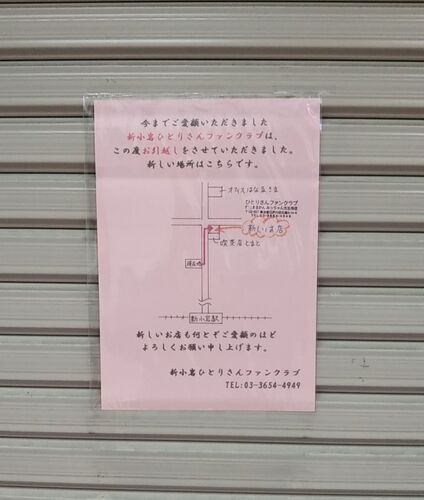 今までご愛顧いただきました
新小岩ひとりさんファンクラブは、
この度お引越しをさせていただきました。
新しい場所はこちらです。
ひとりさんファンクラブ
新しいお店
喫茶店とまと
新小岩駅
新しいお店も何とぞご愛顧のほど
よろしくお願い申し上げます。
新小岩ひとりさんファンクラブ
TEL:03-3654-4949